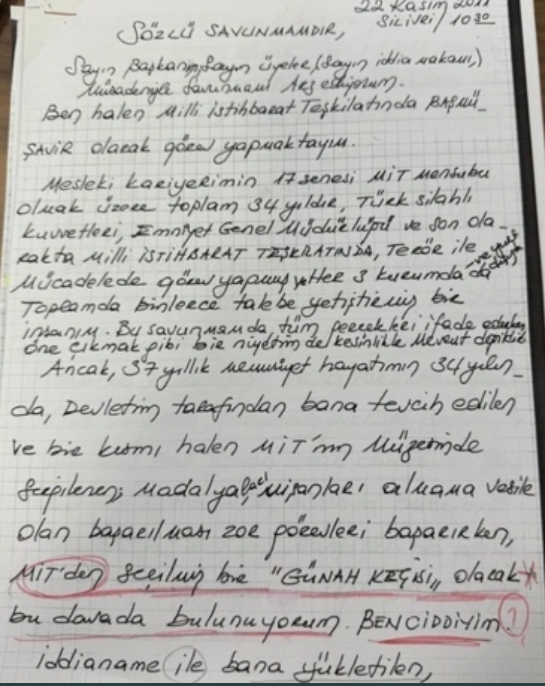 22 KASIM 2011
SİLİVRİ / 10 30
SÖZLÜ SAVUNMAMDIR,
Sayın Başkanım, Sayın üyeler, (Sayın iddia makamı,)
Müsadenizle Savunmamı Arz ediyorum.
Ben halen Milli istihbarat Teşkilatında BAŞMÜ-
ŞAVİR olarak görev yapmaktayım.
Mesleki kariyerimin 17 senesi MİT Mensubu
olmak üzere toplam 34 yıldır, Türk silahlı
kuvvetleri, Emniyet Genel Müdürlüğü ve son ola-
rakta Milli İSTİHBARAT TEŞKİLATINDA, Terör ile
Mücadelede görev yapmış ve her 3 kurumda da
Toplamda binlerce talebe yetiştirmiş bir
insanım. Bu savunmamda, tüm gerçekleri ifade ederken
öne çıkmak gibi bir niyetim de kesinlikle mevcut değildir
Ancak, 37 yıllık memuriyet hayatımın 34 yılın-
da, Devletim tarafından bana tevcih edilen
ve bir kısmı halen MİT'nın Müzesinde
Sergilenen; Madalya, nişanları almama vesile
olan başarılması zor görevleri başarırken,
MİT'den seçilmiş bir "GÜNAH KEÇİSİ" olarak *
bu davada bulunuyorum. BEN CİDDİYİM?
iddianame ile bana yükletilen,